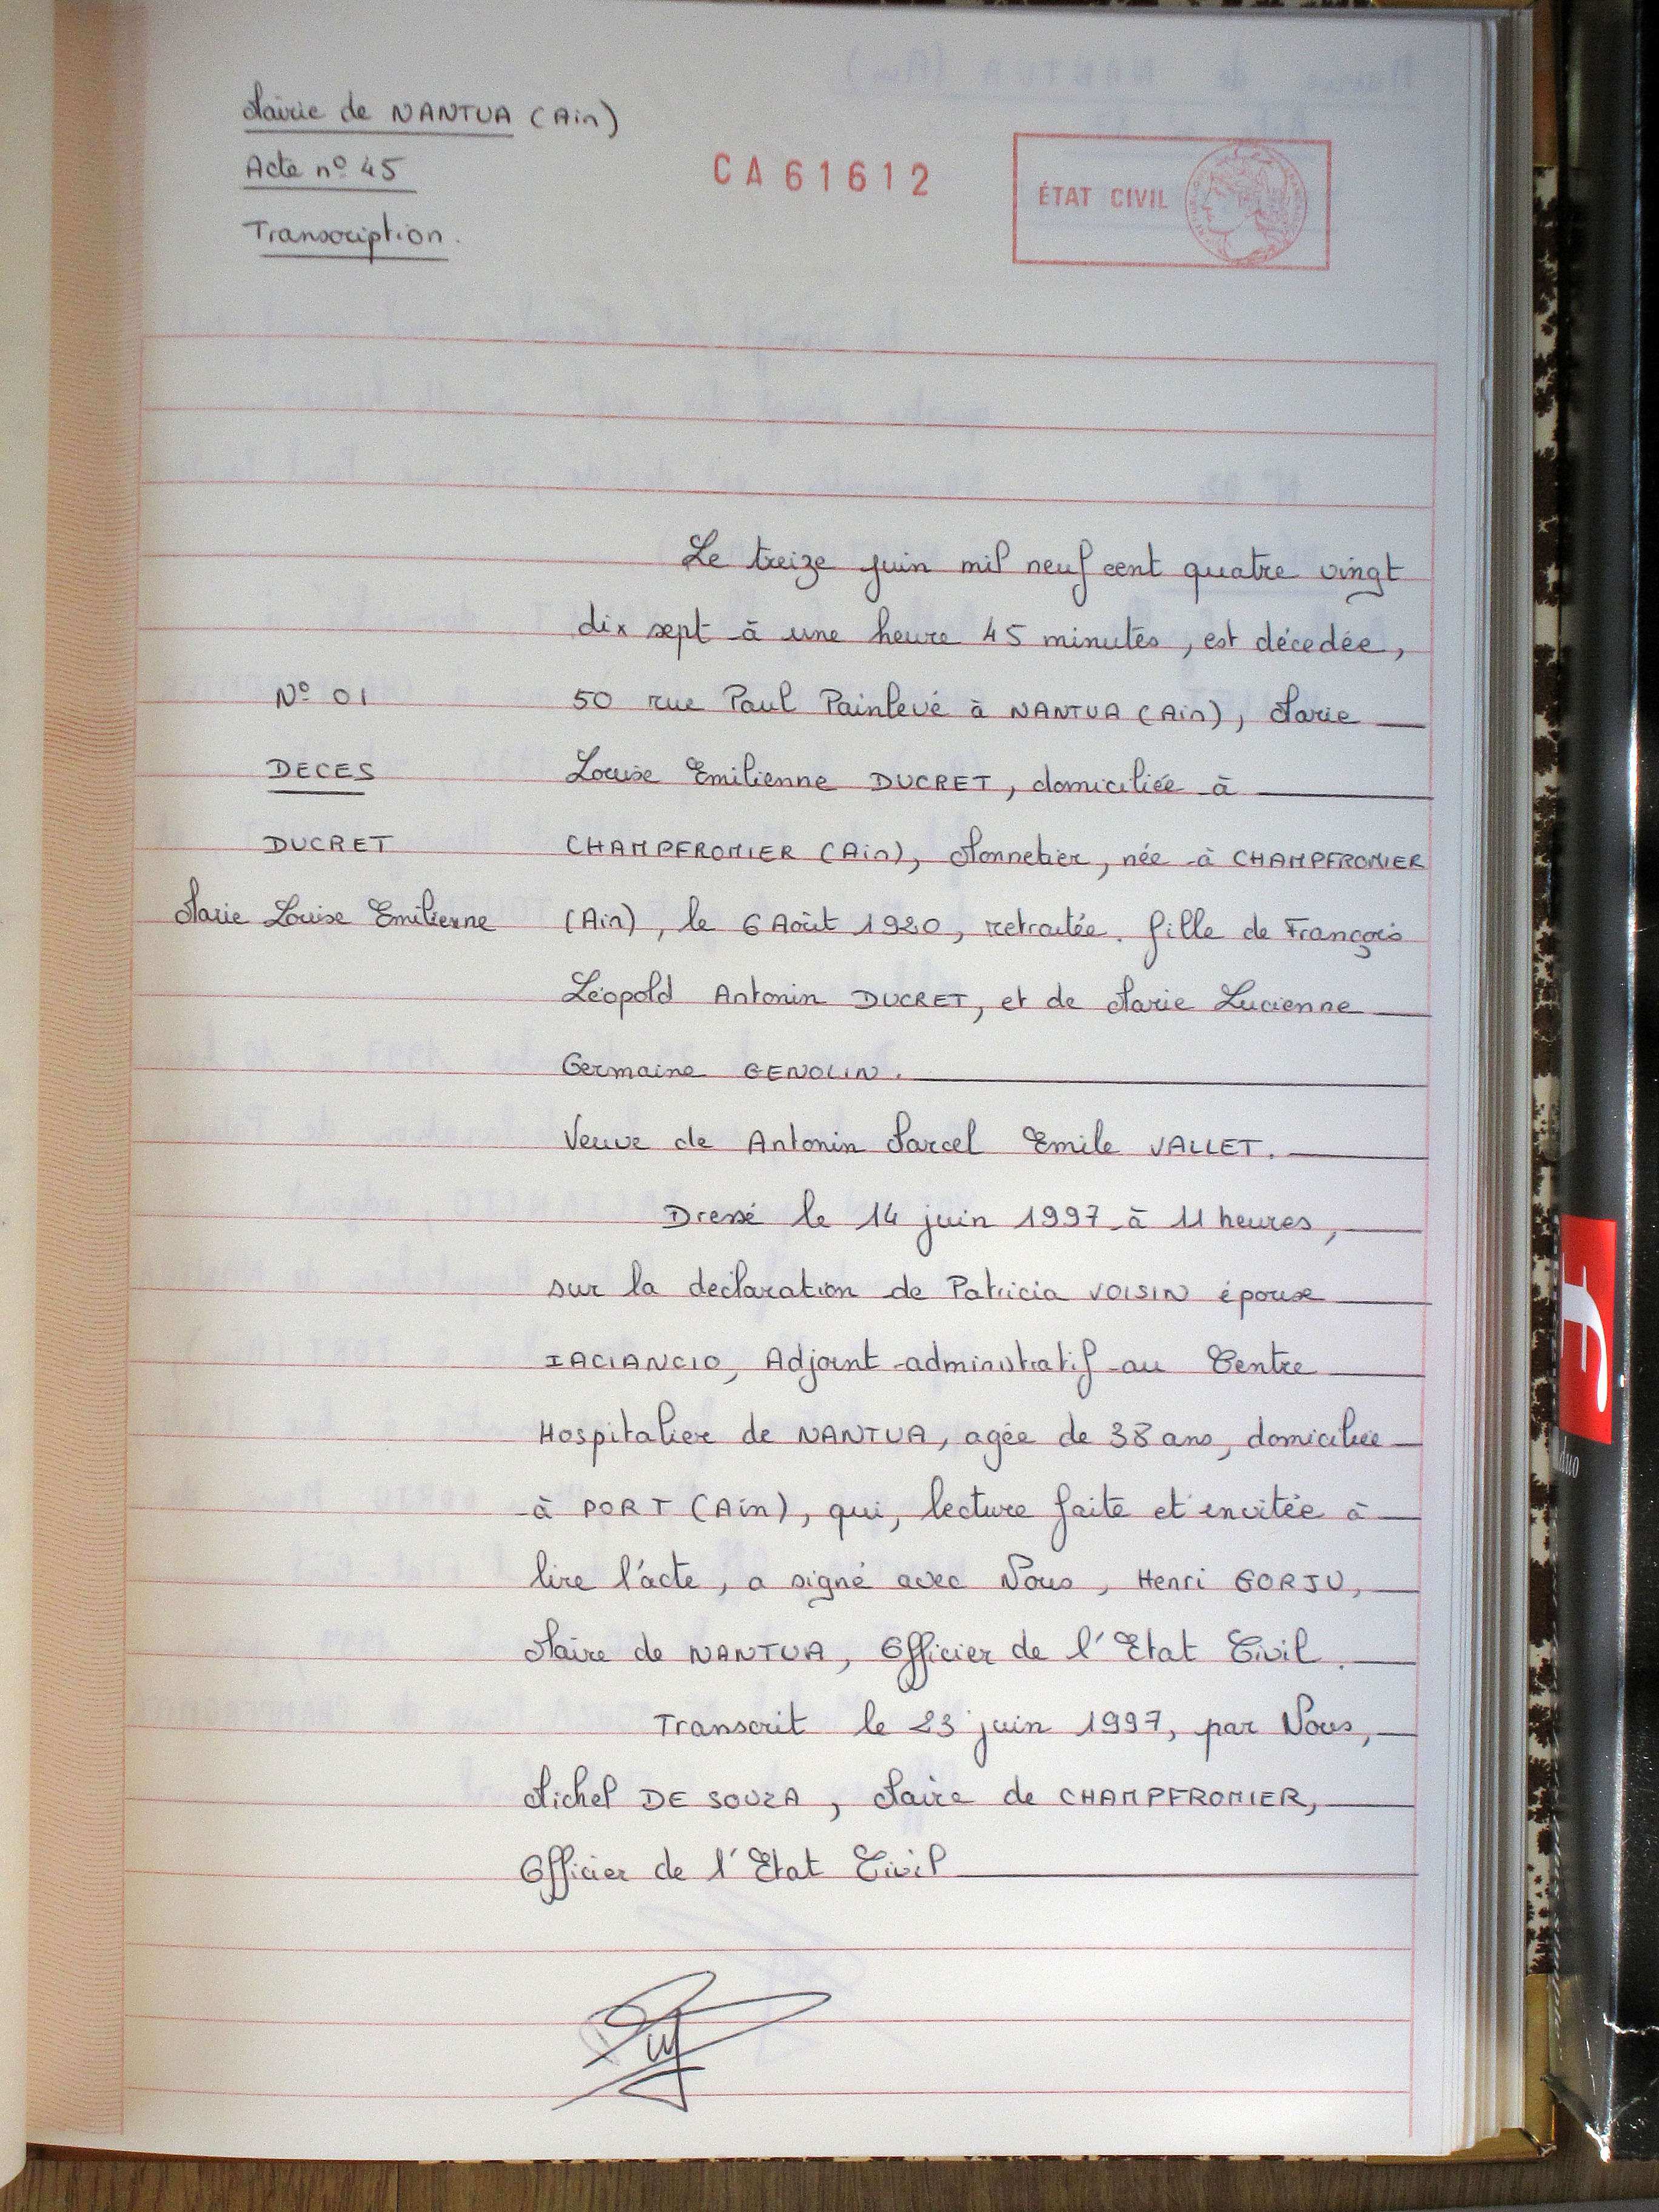 Mairie de NANTUA (Ain)
Acte nº 45
Transcription.
CA61612
ÉTAT CIVIL
Le treize juin mil neuf cent quatre vingt
dix sept à une heure 45 minutes, est décedée,
Nº 01
50 rue Paul Painlevé à NANTUA (Ain), Marie
DECES
Louise Emilienne DUCRET, domiciliée à
DUCRET
CHAMPFROMIER (Ain), Monnetier, née à CHAMPFROMIER
Marie Louise Emilienne
(Ain), le 6 Août 1920, retraitée. fille de François
Léopold Antonin DUCRET, et de Marie Lucienne
Germaine GENOLIN.
Veuve de Antonin Marcel Emile VALLET.
Dressé le 14 juin 1997 à 11 heures,
sur la déclaration de Patricia VOISIN épouse
IACIANCIO, Adjoint administratif au Centre
Hospitalier de NANTUA, agée de 38 ans, domiciliée
à PORT (Ain), qui, lecture faite et invitée à
lire l'acte, a signé avec Nous, Henri GORJU,
Maire de NANTUA, Officier de l'Etat Civil.
Transcrit le 23 juin 1997, par Nous,
Michel DE SOUZA, Maire de CHAMPFROMIER,
Officier de l'Etat Civil
duo